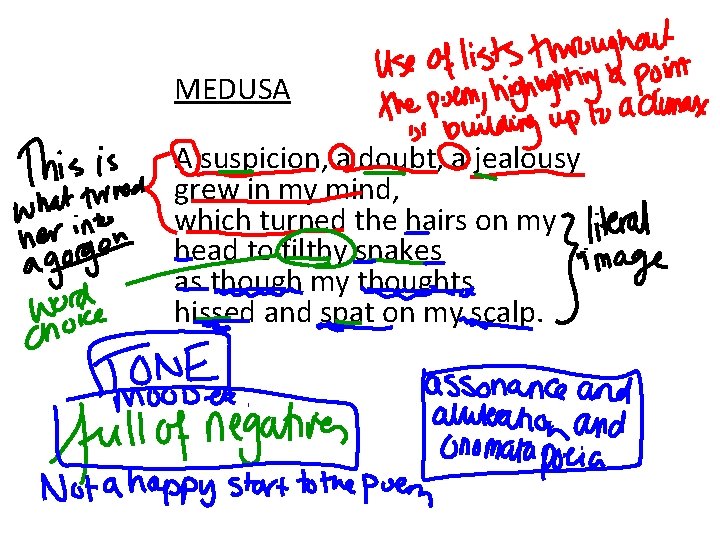 Use of lists throughout
the poem, highlighting a point
or building up to a climax
MEDUSA
A suspicion, a doubt, a jealousy
grew in my mind,
which turned the hairs on my
head to filthy snakes
as though my thoughts
hissed and spat on my scalp.
This is
what turned
her into
a gorgon
word
choice
literal
image
TONE
full of negatives
Not a happy start to the poem
assonance and
alliteration and
onomatapoeia